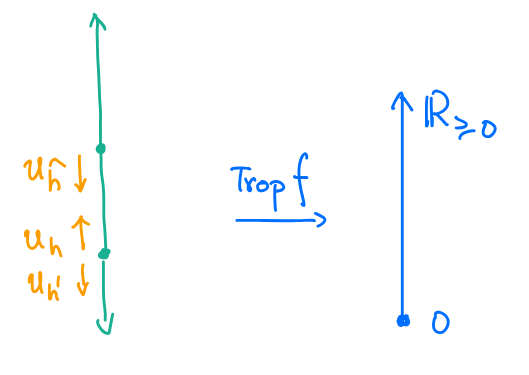 u_ĥ ↓
u_h ↑
u_h' ↓
Trop f
ℝ_⩾0
0